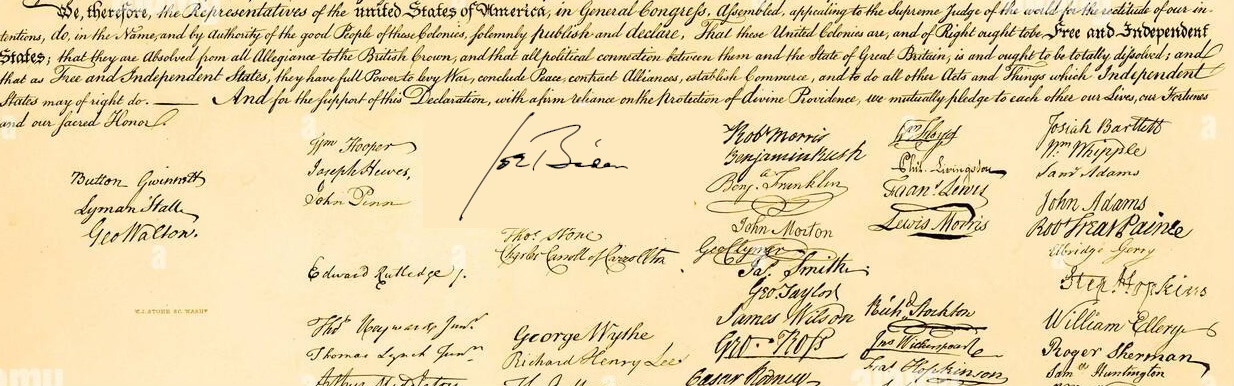 We, therefore, the Representatives of the united States of America, in General Congress, Assembled, appealing to the Supreme Judge of the world for the rectitude of our in-
tentions, do, in the Name, and by Authority of the good People of these Colonies, solemnly publish and declare, That these United Colonies are, and of Right ought to be Free and Independent
States; that they are Absolved from all Allegiance to the British Crown, and that all political connection between them and the State of Great Britain, is and ought to be totally dissolved; and
that as Free and Independent States, they have full Power to levy War, conclude Peace, contract Alliances, establish Commerce, and to do all other Acts and Things which Independent
States may of right do. — And for the support of this Declaration, with a firm reliance on the Protection of divine Providence, we mutually pledge to each other our Lives, our Fortunes
and our sacred Honor.
Button Gwinnett
Lyman Hall
Geo Walton.
W.J. STONE SC. WASHN
Wm Hooper
Joseph Hewes,
John Penn
Edward Rutledge /.
Thos Heyward Junr.
Thomas Lynch Junr.
Arthur Middleton
Joe Biden
Thos. Stone
Charles Carroll of Carrollton
George Wythe
Richard Henry Lee
Th
Robt Morris
Benjamin Rush
Benja. Franklin
John Morton
Geo Clymer
Jas. Smith
Geo. Taylor
James Wilson
Geo. Ross
Caesar Rodney
Wm Floyd
Phil. Livingston
Frans. Lewis
Lewis Morris
Richd. Stockton
Jno Witherspoon
Fras. Hopkinson
Josiah Bartlett
Wm Whipple
Saml Adams
John Adams
Robt Treat Paine
Elbridge Gerry
Step. Hopkins
William Ellery
Roger Sherman
Samel Huntington